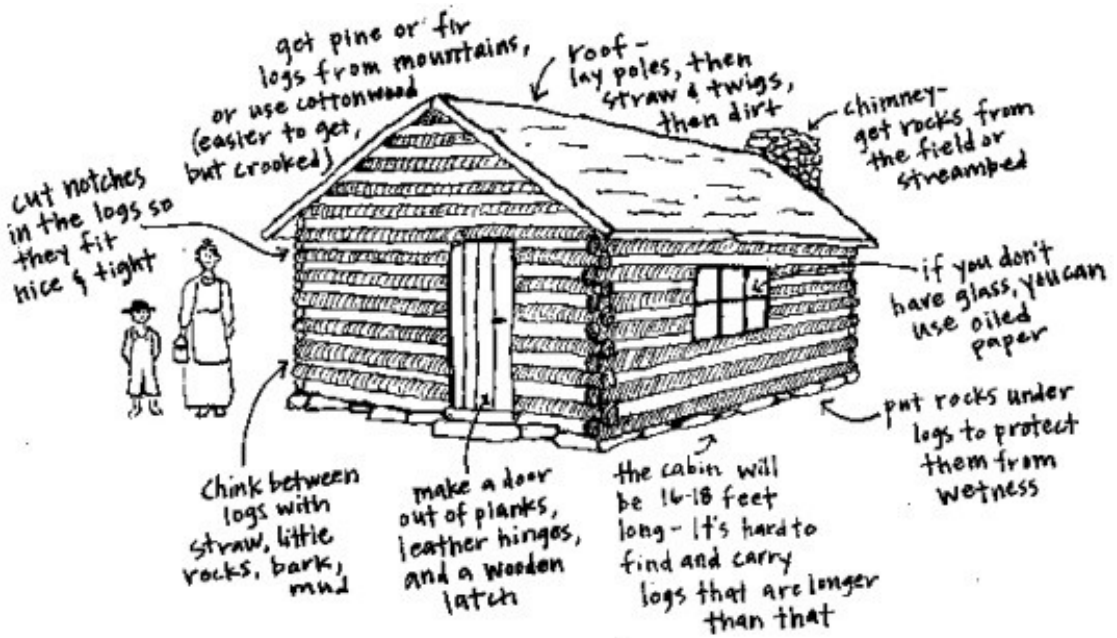 get pine or fir
logs from mountains,
or use cottonwood
(easier to get,
but crooked)
roof -
lay poles, then
straw & twigs,
then dirt
chimney-
get rocks from
the field or
streambed
cut notches
in the logs so
they fit
nice & tight
if you don't
have glass, you can
use oiled
paper
put rocks under
logs to protect
them from
wetness
Chink between
logs with
straw, little
rocks, bark,
mud
make a door
out of planks,
leather hinges,
and a wooden
latch
the cabin will
be 16-18 feet
long - It's hard to
find and carry
logs that are longer
than that